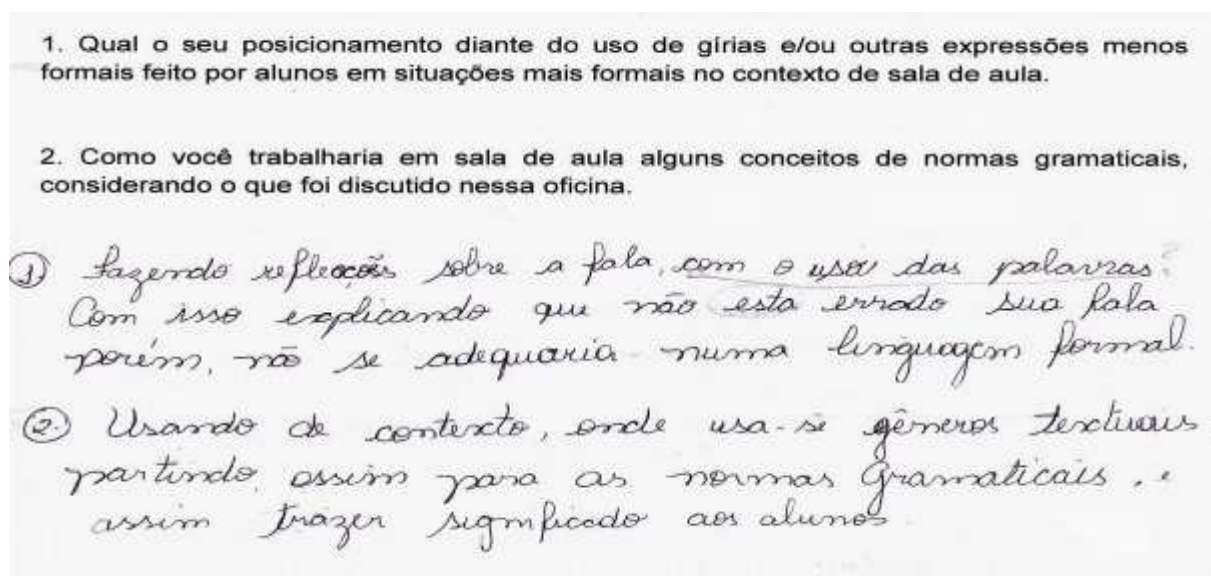 1. Qual o seu posicionamento diante do uso de gírias e/ou outras expressões menos
formais feito por alunos em situações mais formais no contexto de sala de aula.
2. Como você trabalharia em sala de aula alguns conceitos de normas gramaticais,
considerando o que foi discutido nessa oficina.
1) Fazendo reflecções sobre a fala, com o uso das palavras.
Com isso explicando que não esta errado sua fala
porém, não se adequaria numa linguagem formal.
2. Usando de contexto, onde usa-se gêneros textuais
partindo assim para as normas Gramaticais, e
assim trazer significado aos alunos